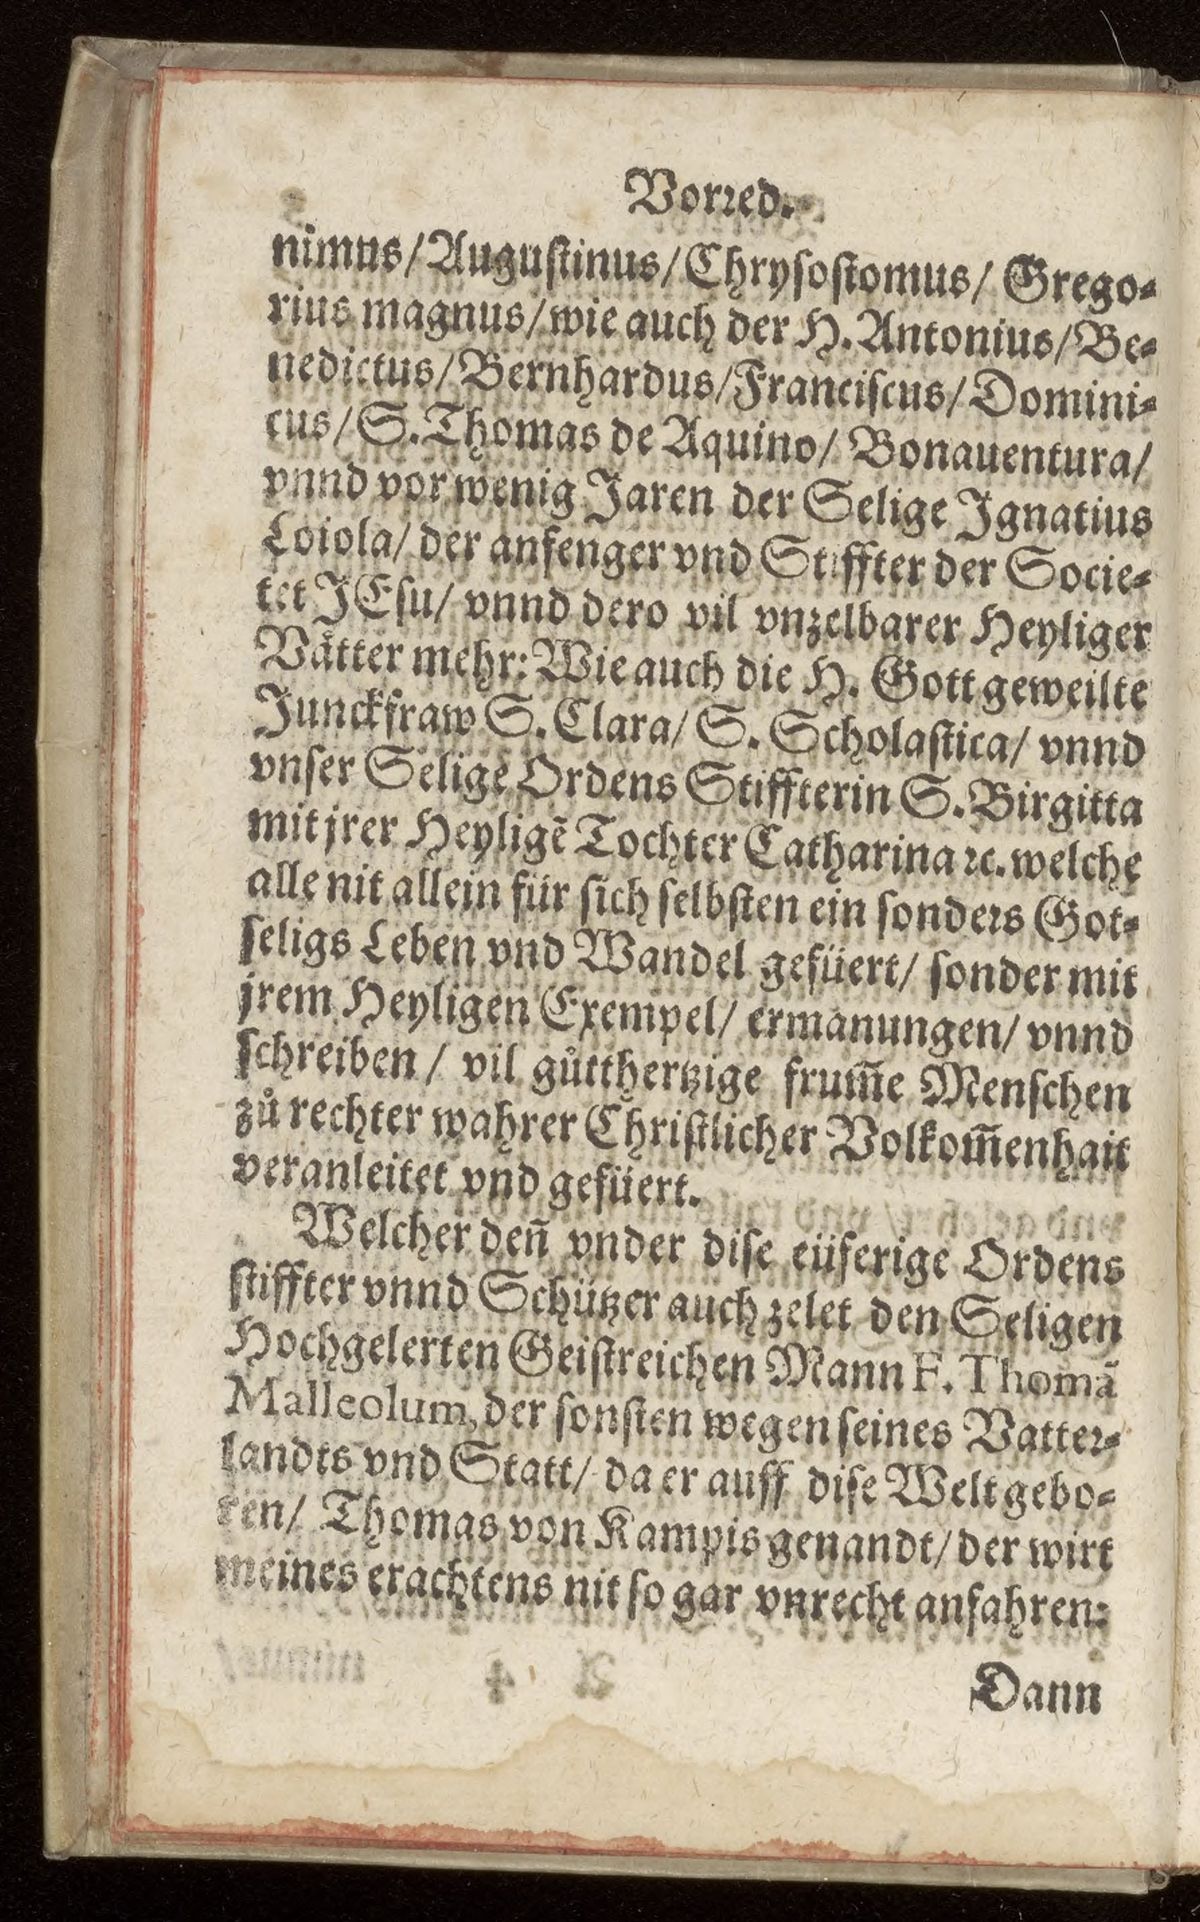 Vorꝛed.
nimus/Auguſtinus/Chryſoſtomus/ Grego⸗
rius magnus/wie auch der H. Antonius/Be⸗
nedictus/Bernhardus/Franciſcus/Domini⸗
cus/S. Thomas de Aquino/ Bonauentura/
vnnd vor wenig Jaren der Selige Ignatius
Loiola/ der anfenger vnd Stiffter der Socie⸗
tet JEſu/ vnnd dero vil vnzelbarer Heyliger
Vaͤtter mehr: Wie auch die H. Gott geweilte
Junckfraw S. Clara/ S. Scholaſtica/ vnnd
vnſer Selige Ordens Stiffterin S. Birgitta
mit jrer Heyligē Tochter Catharina ꝛc. welche
alle nit allein für ſich ſelbſten ein ſondeꝛs Got⸗
ſeligs Leben vnd Wandel gefüert/ ſonder mit
jrem Heyligen Exempel/ ermanungen/ vnnd
ſchreiben / vil gůtthertzige frum̃e Menſchen
zů rechter wahrer Chriſtlicher Volkom̃enhait
veranleitet vnd gefüert.
Welcher deñ vnder diſe eüferige Ordens
ſtiffter vnnd Schützer auch zelet den Seligen
Hochgelerten Geiſtreichen Mann F. Thomã
Malleolum, der ſonſten wegen ſeines Vatteꝛ⸗
landts vnd Statt/ da er auff diſe Welt gebo⸗
ren/ Thomas von Kampis genandt/ der wirt
meines erachtens nit ſo gar vnrecht anfahren:
Dann